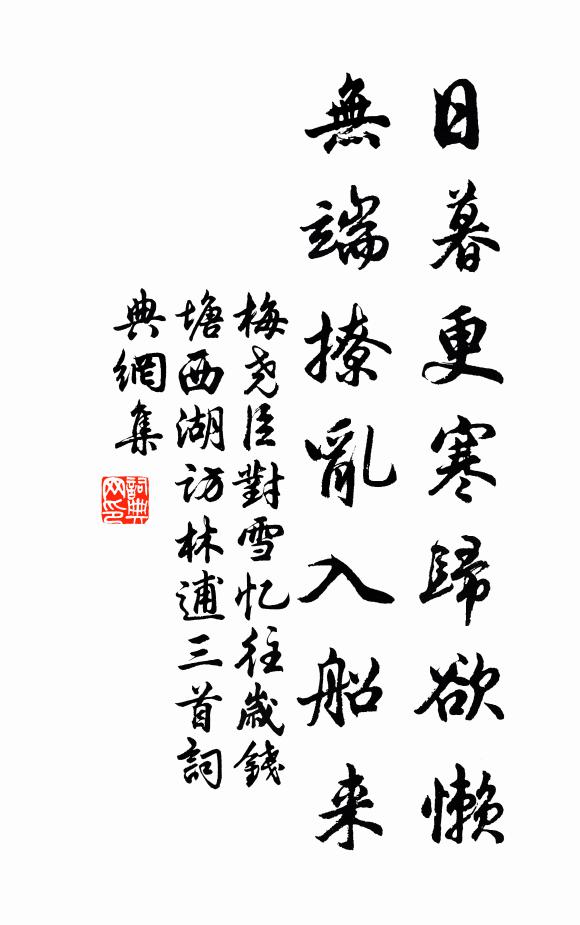 日暮更寒歸欲懶
無端撩亂入船来
梅尧臣對雪忆往歲錢
塘西湖访林逋三首詞
典網集
詞典
网印